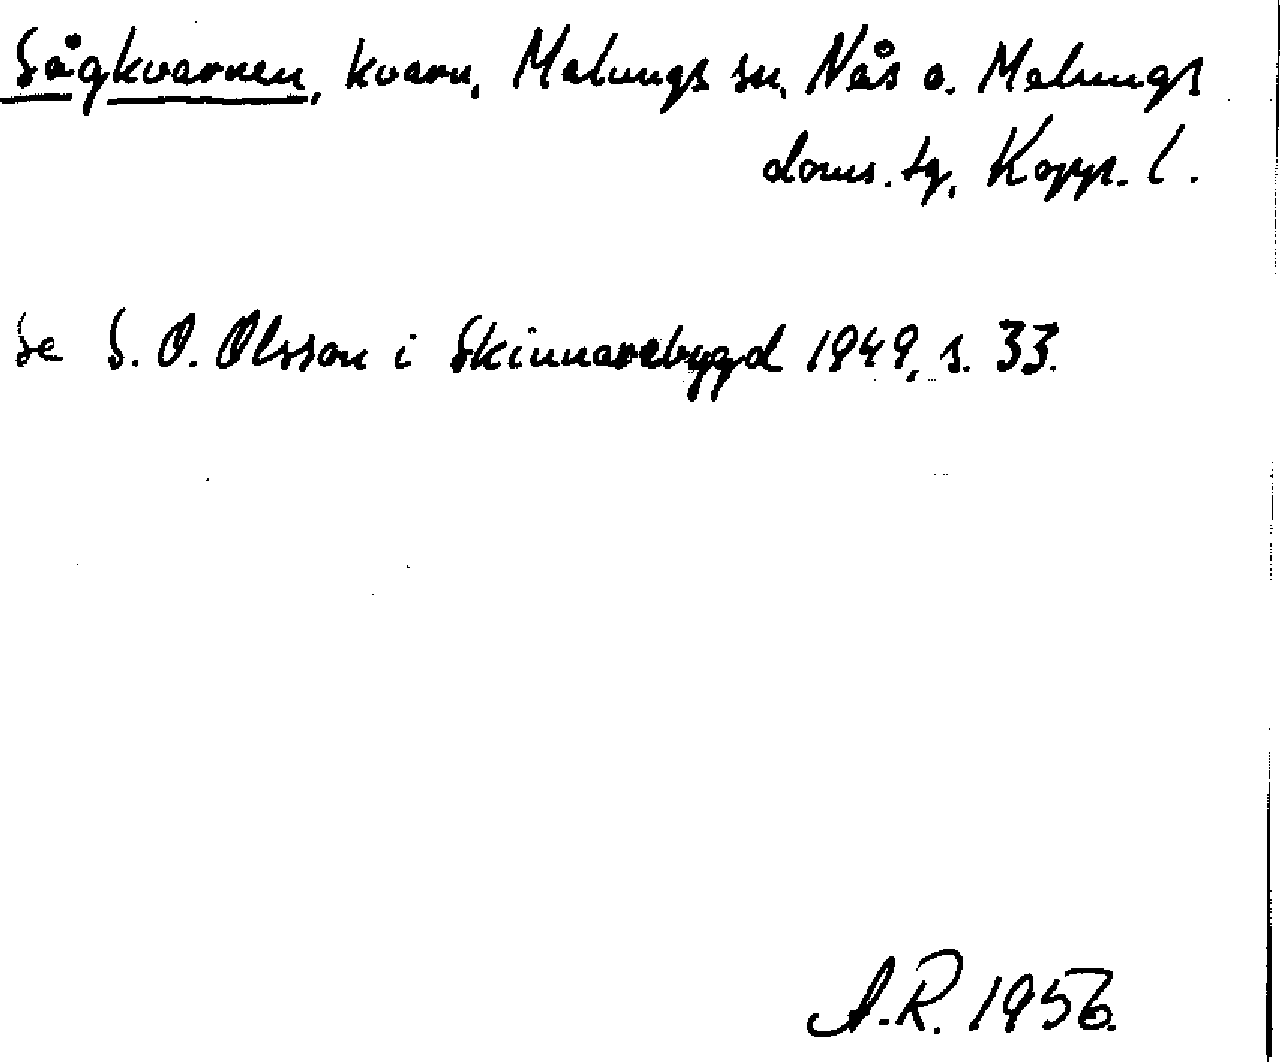 Sågkvarnen, kvarn, Malungs sn, Nås o. Malungs
doms. tg, Kopp. l.
Se S. O. Olsson i Skinnarebygd 1949, s. 33.
A.R. 1956.